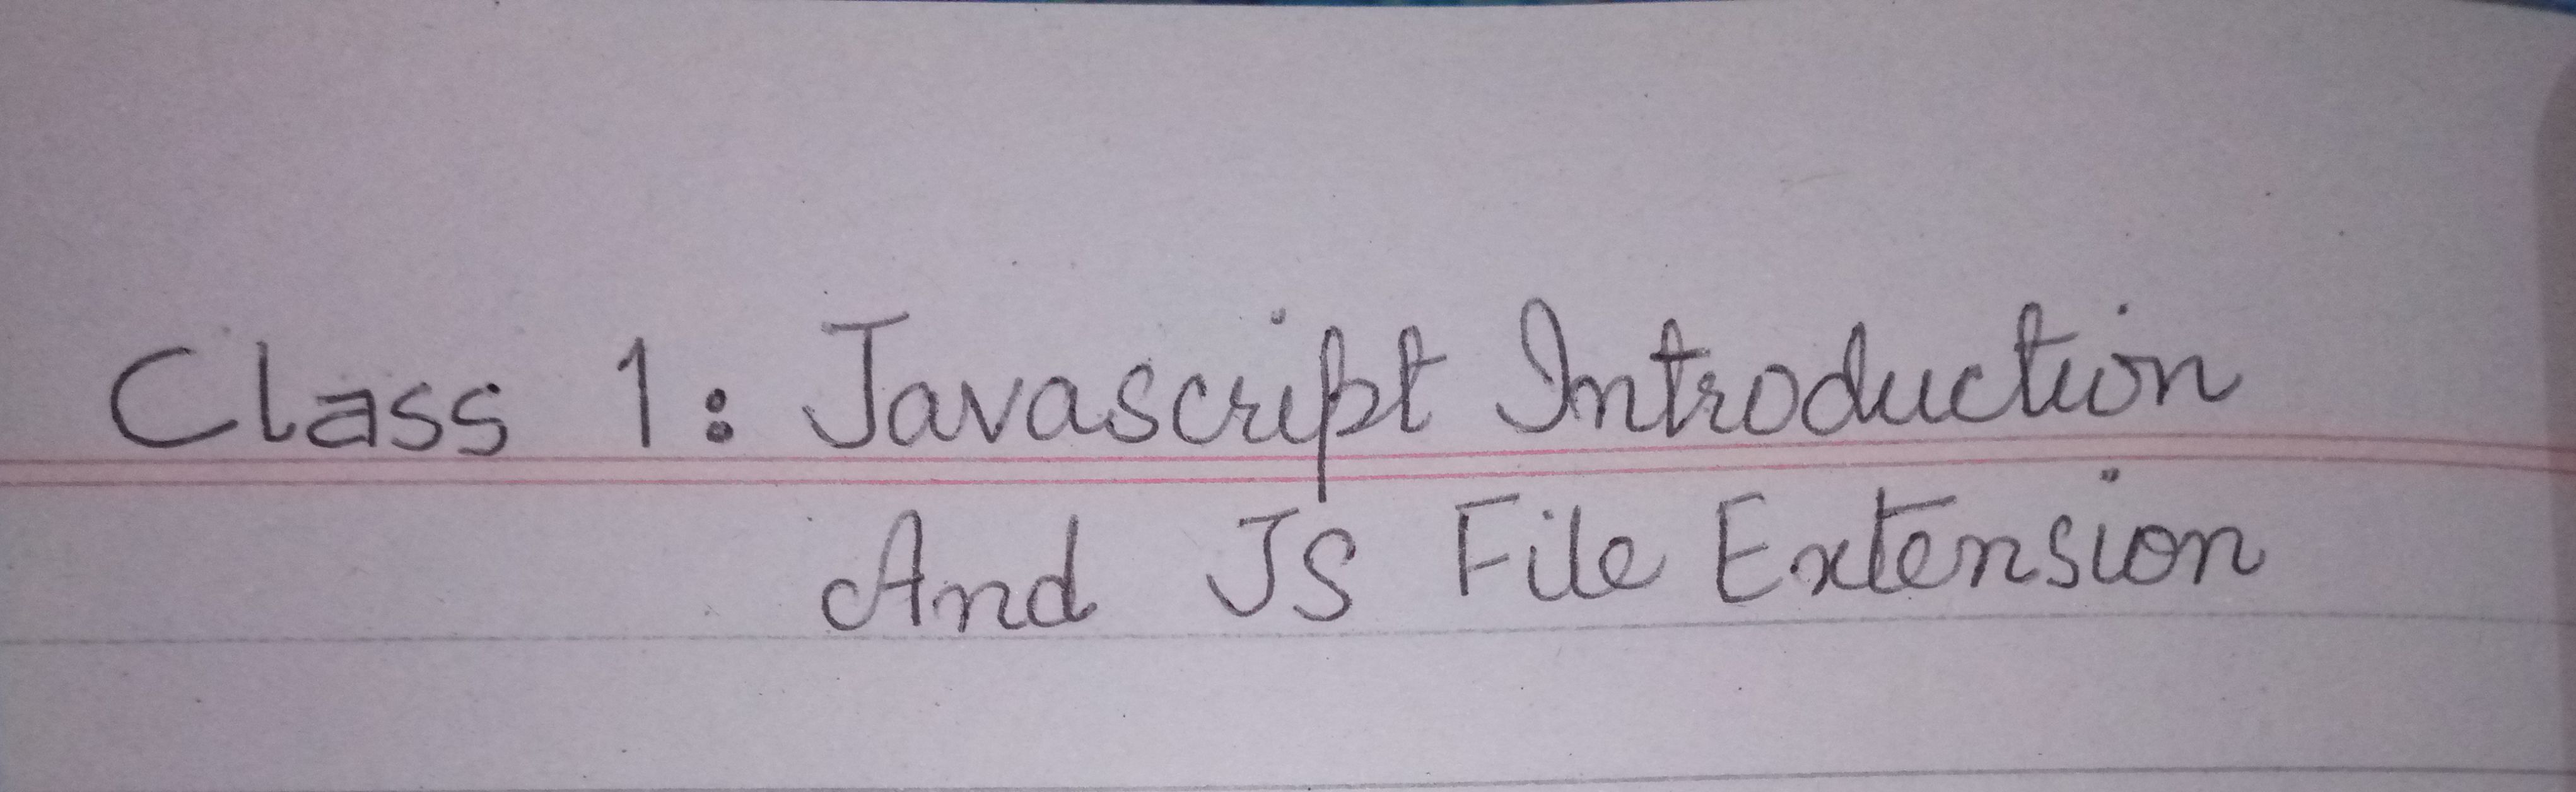 Class 1: Javascript Introduction
And JS File Extension